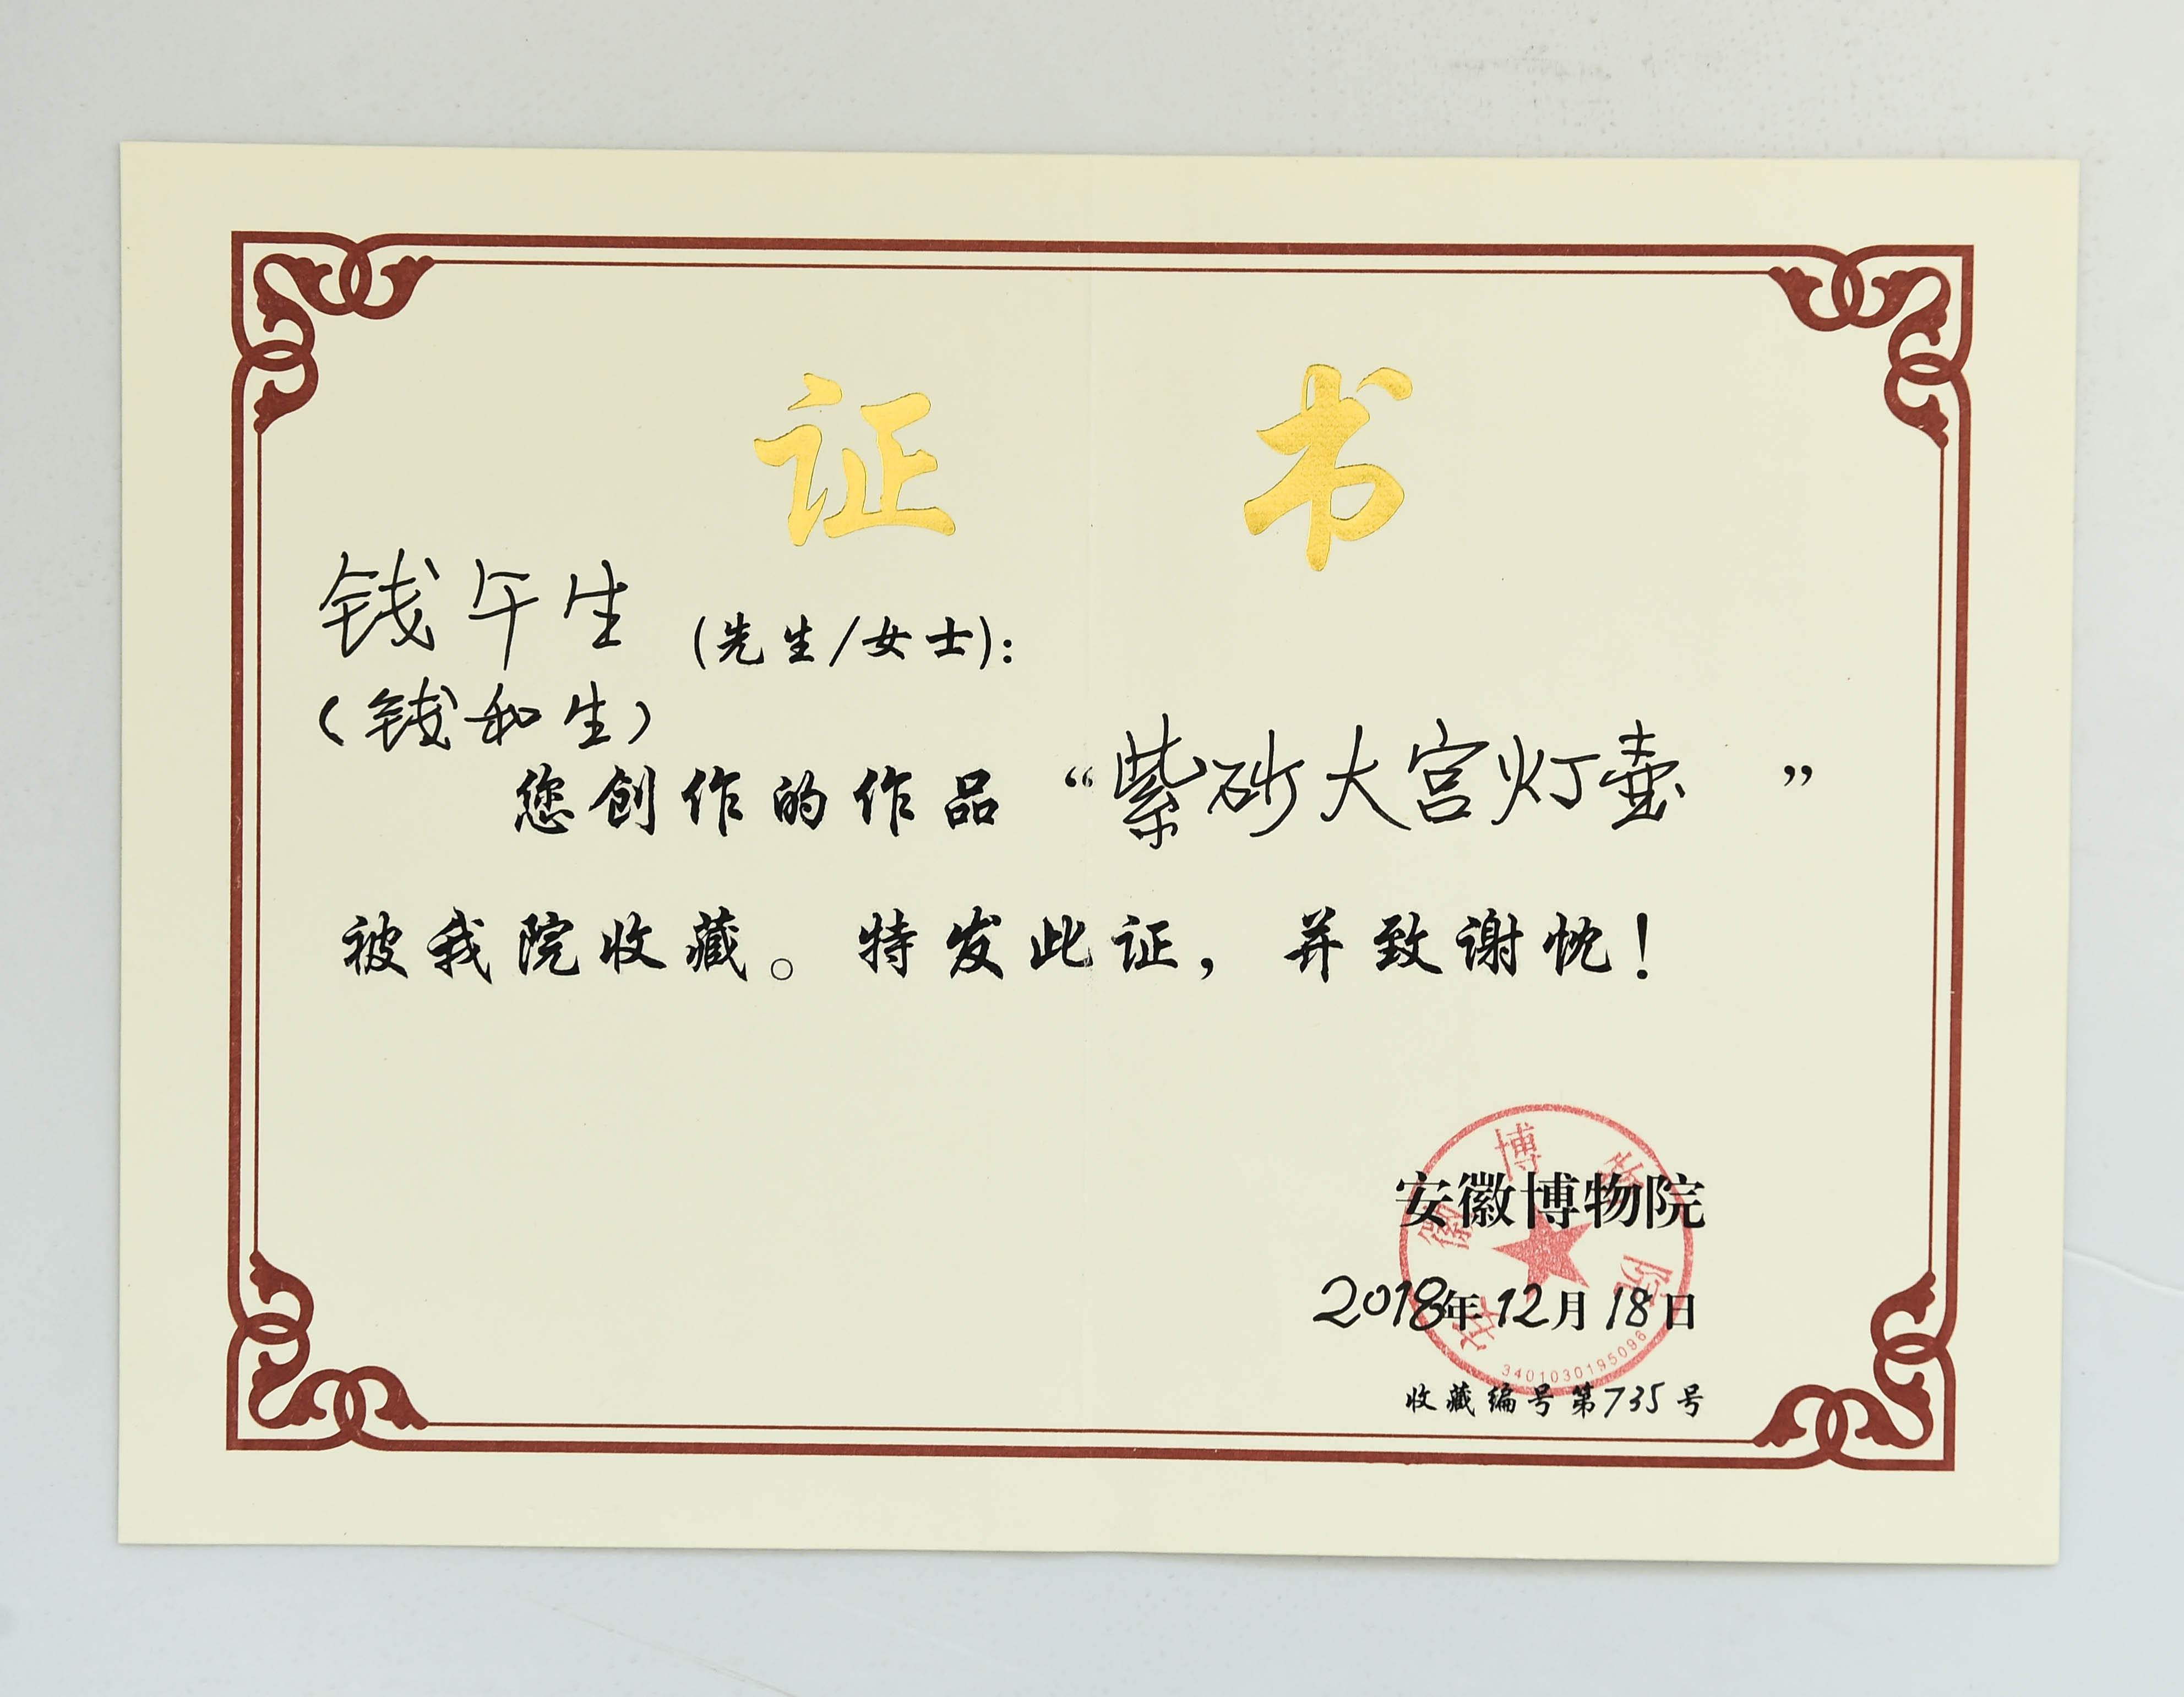 证 书
钱午生 (先生/女士):
(钱和生)
您创作的作品“紫砂大宫灯壶 ”
被我院收藏。特发此证，并致谢忱！
安徽博物院
2018年12月18日
收藏编号第735号
安徽博物院
3401030195096